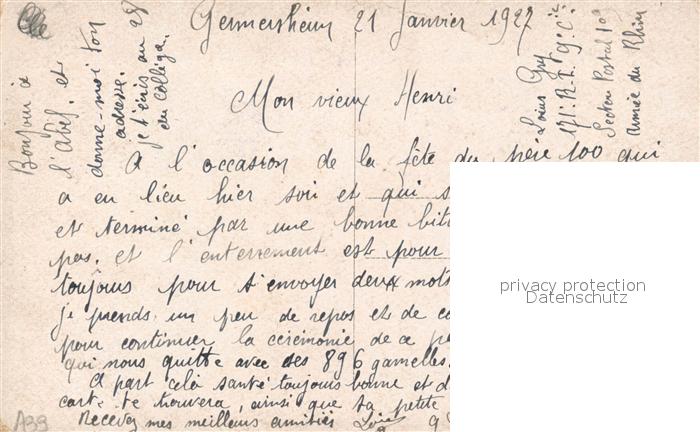 Germersheim 21 Janvier 1927
Mon vieux Henri
A l'occasion de la fête du père 100 qui
a eu lieu hier soir et qui s
et terminé par une bonne bit
pas. et l'enterrement est pour
toujours pour t'envoyer deux mots
je prends un peu de repos et de co
pour continuer la cérémonie de ce pe
qui nous quitte avec ses 896 gamelles.
A part celà santé toujours bonne et d
carte te trouvera, ainsi que ta petite
Recevez mes meilleurs amitiés Louis
Bonjour à
l'Abel. et
donne-moi ton
adresse.
je t'écris au 28
au collège.
Louis Gry
171. R.I. 9e Cie
Secteur Postal 109
Armée du Rhin
privacy protection
Datenschutz
A39